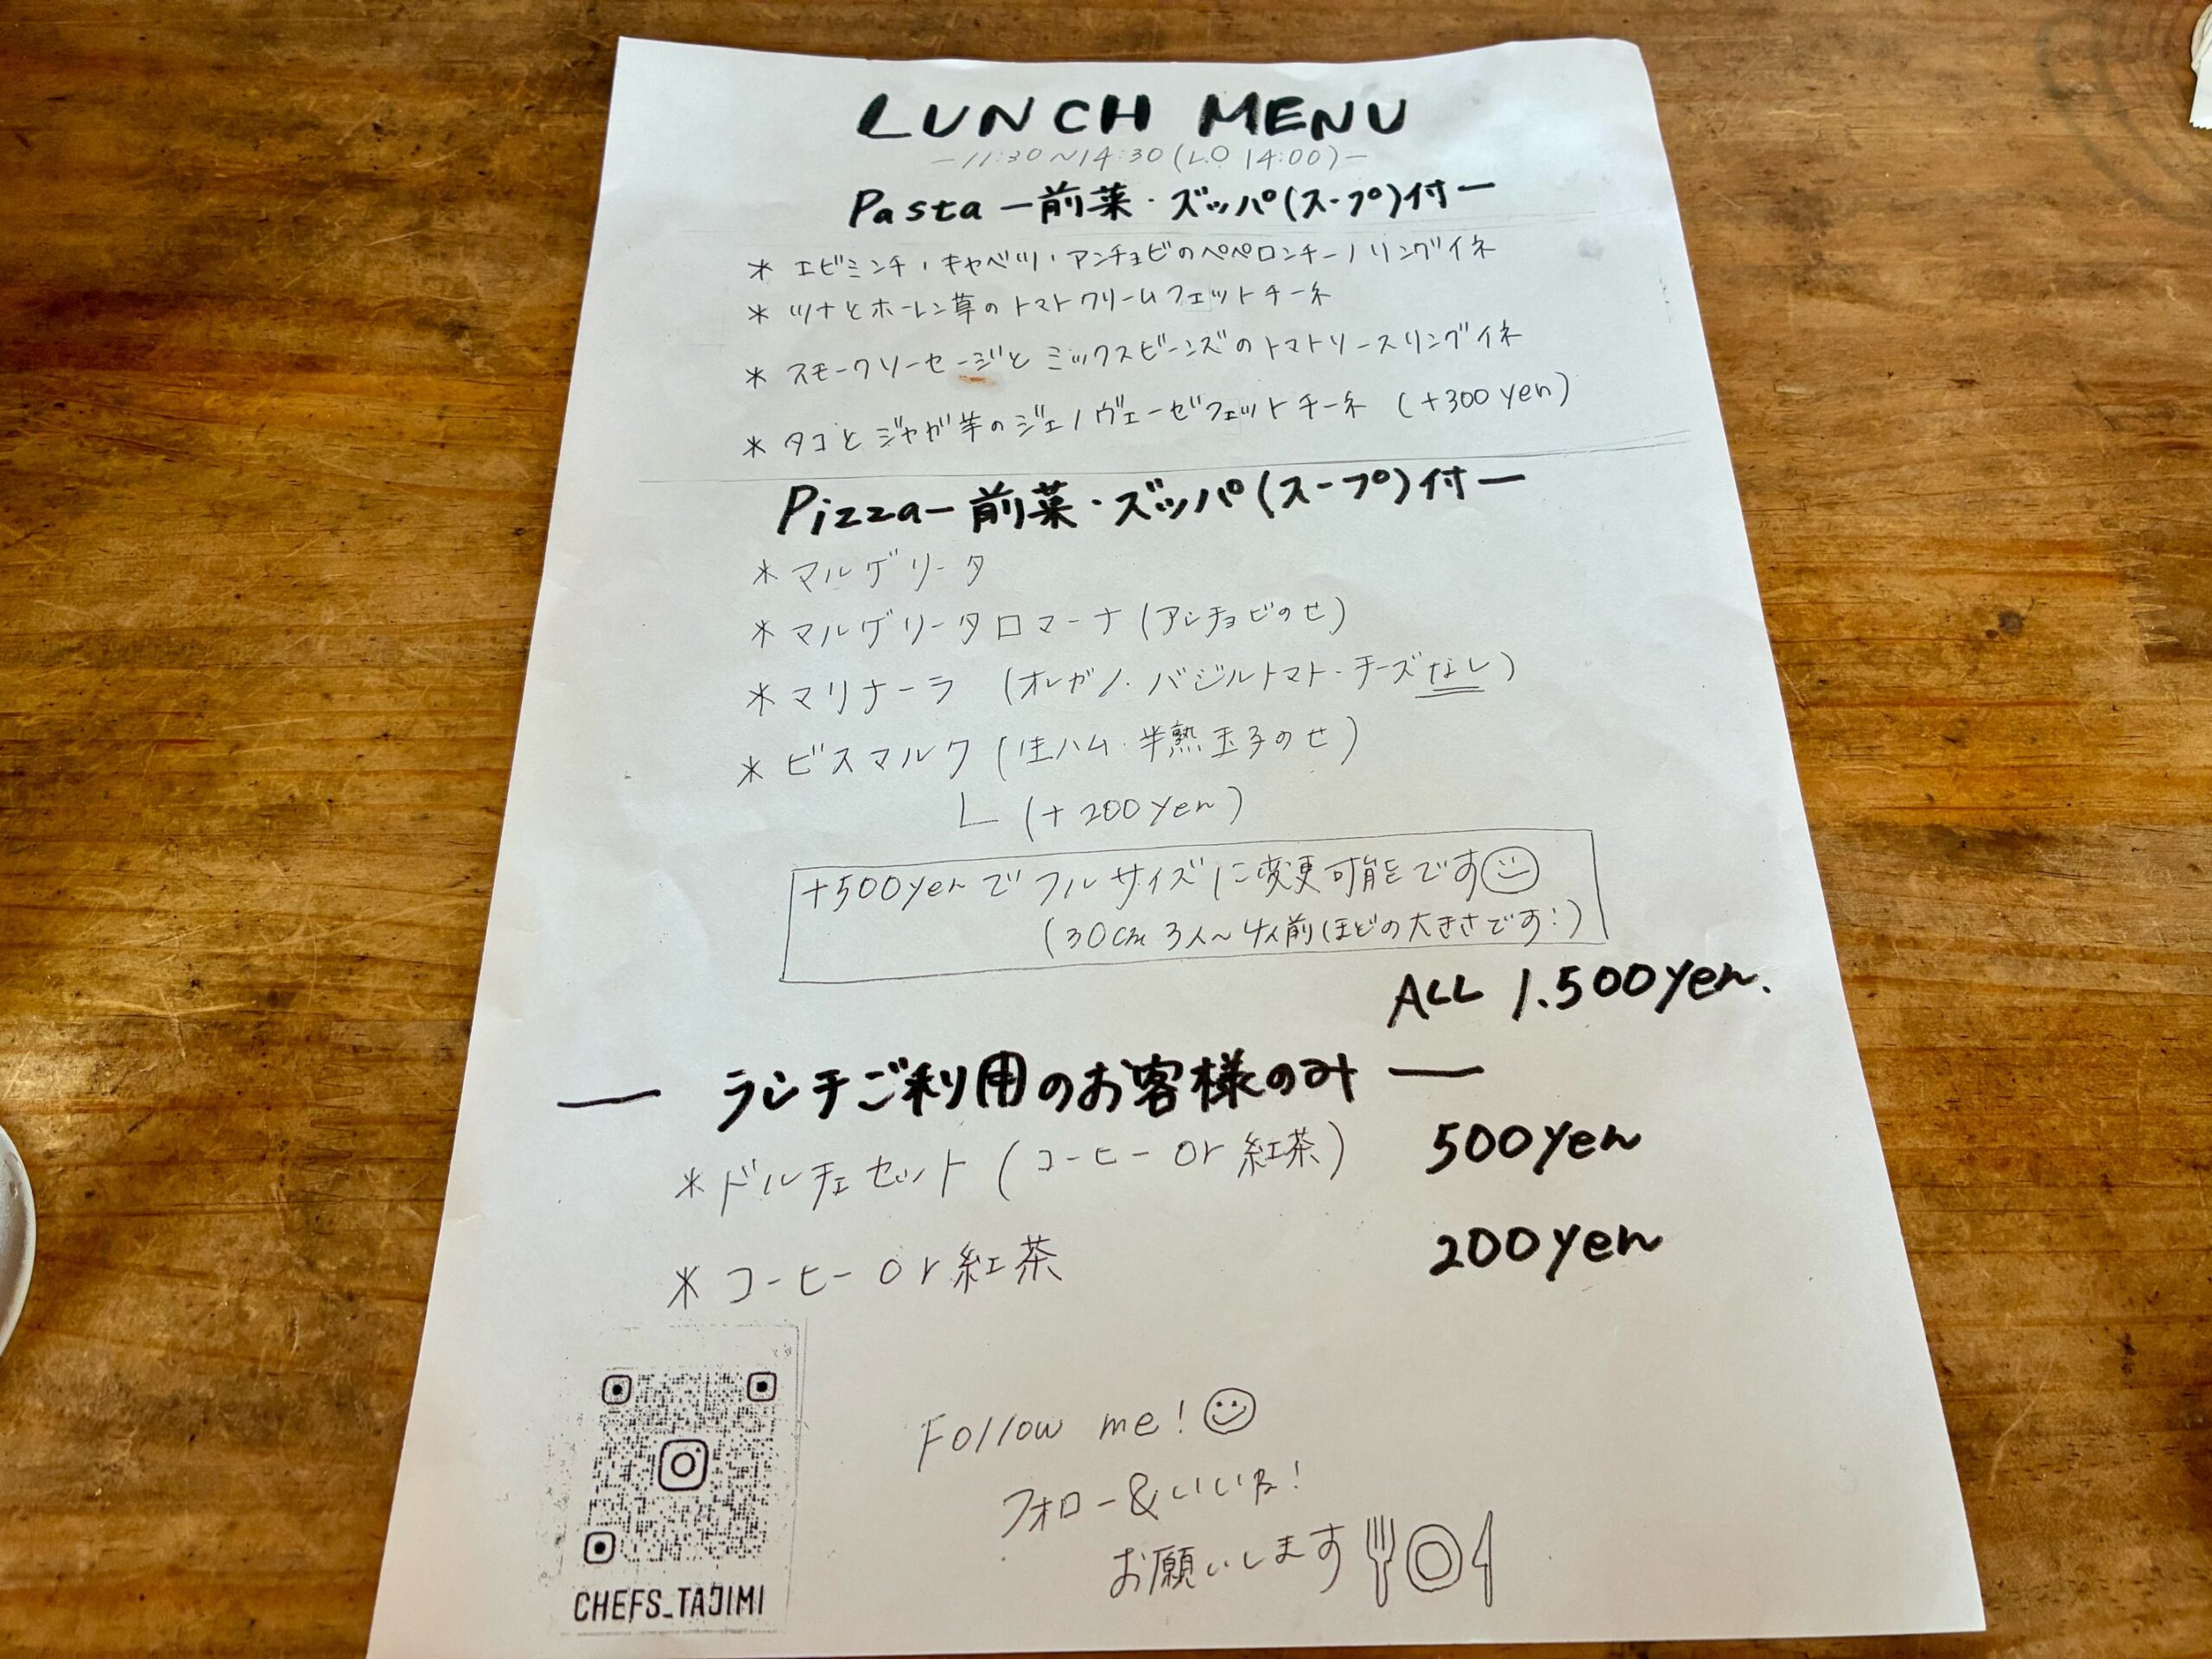 LUNCH MENU
-11:30~14:30(L.O 14:00)-
Pasta ー前菜・ズッパ(スープ)付ー
* エビミンチ・キャベツ・アンチョビのペペロンチーノリングイネ
* ツナとホーレン草のトマトクリームフェットチーネ
* スモークソーセージとミックスビーンズのトマトソースリングイネ
* タコとジャガ芋のジェノヴェーゼフェットチーネ (+300yen)
Pizzaー前菜・ズッパ(スープ)付ー
* マルゲリータ
* マルゲリータロマーナ(アンチョビのせ)
* マリナーラ (オレガノ・バジルトマト・チーズなし)
* ビスマルク(生ハム・半熟玉子のせ)
L (+200yen)
+500yenでフルサイズに変更可能です
(30cm 3人~4人前ほどの大きさです!)
ALL 1.500yen.
ー ランチご利用のお客様のみ ー
* ドルチェセット(コーヒー or 紅茶) 500yen
* コーヒー or 紅茶 200yen
Follow me!
フォロー&いいね!
お願いします
CHEFS_TAJIMI